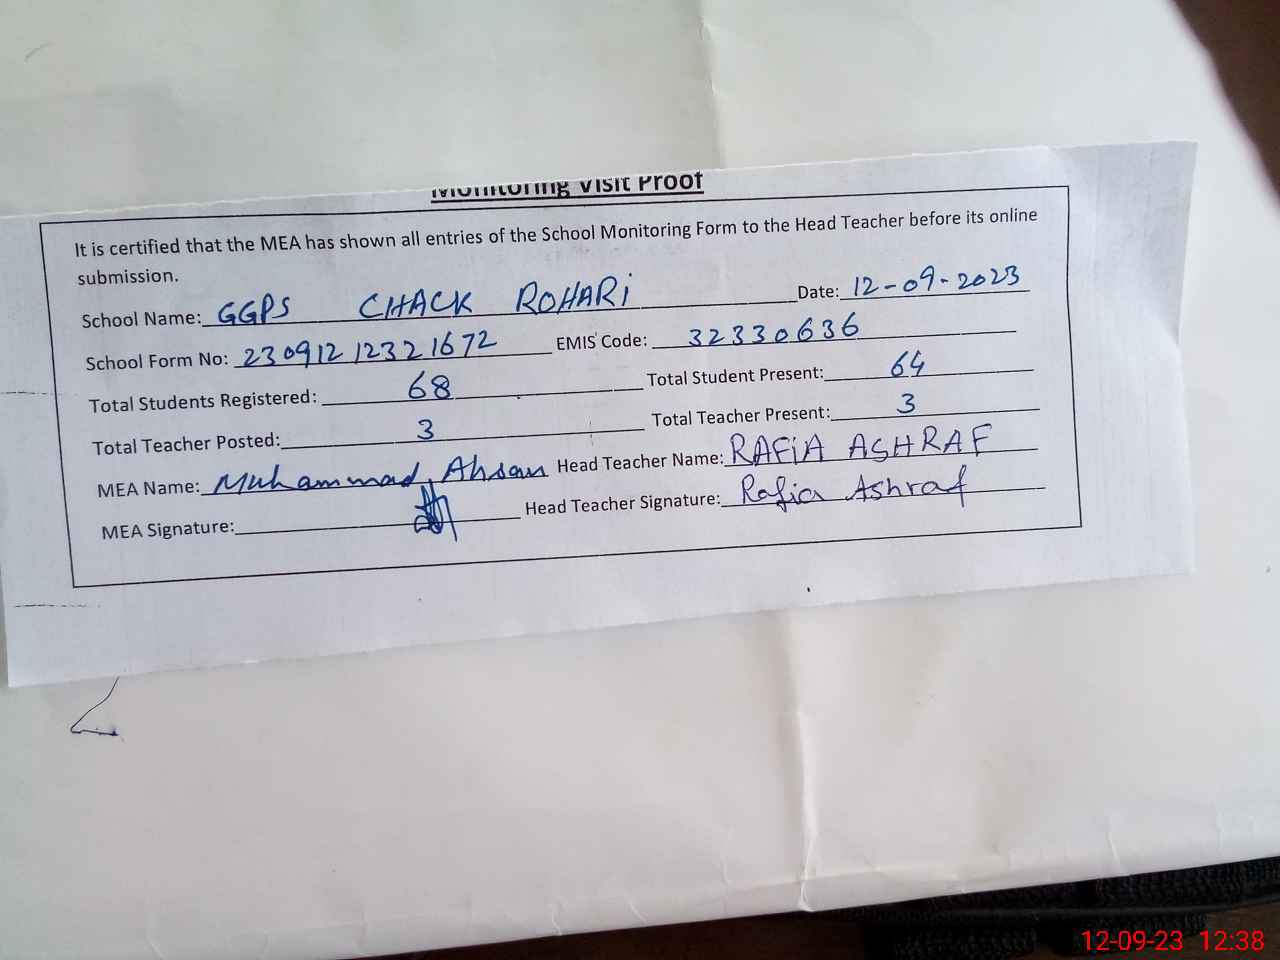 Monitoring Visit Proof
It is certified that the MEA has shown all entries of the School Monitoring Form to the Head Teacher before its online
submission.
School Name: GGPS CHACK ROHARi Date: 12-09-2023
School Form No: 23091212321672 EMIS Code: 32330636
Total Students Registered: 68 Total Student Present: 64
Total Teacher Posted: 3 Total Teacher Present: 3
MEA Name: Muhammad Ahsan Head Teacher Name: RAFiA ASHRAF
MEA Signature: Head Teacher Signature: Rafia Ashraf
12-09-23 12:38